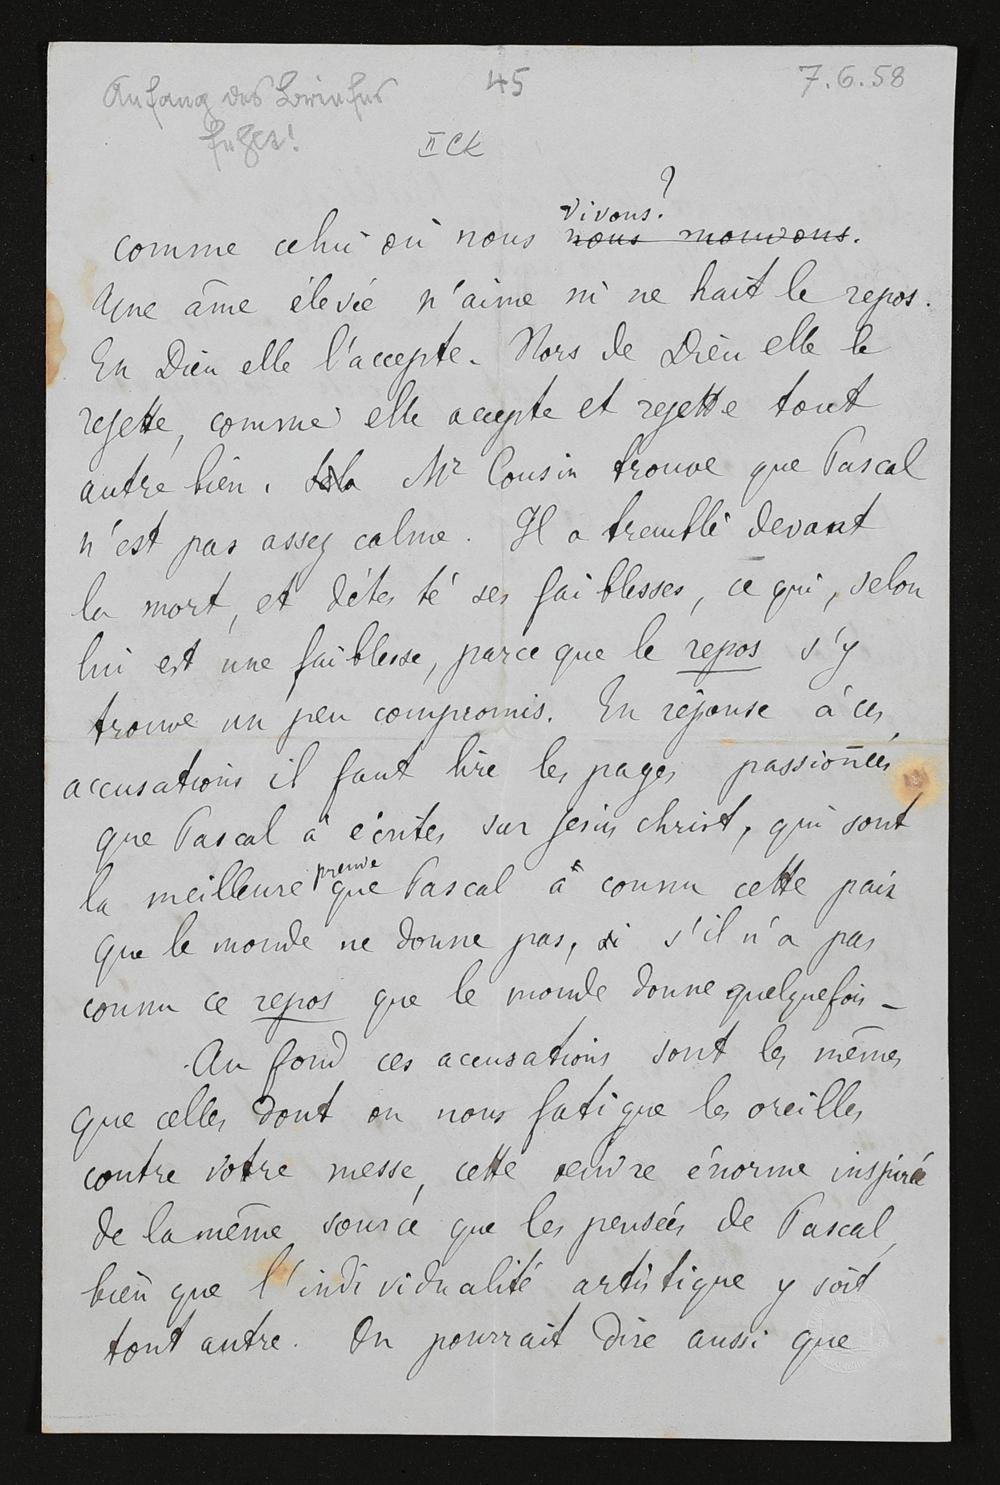 Anfang des Briefes
fehlt!
45
7.6.58
II CK
comme celui où nous vivons? nous mouvons.
Une âme élevée n'aime ni ne hait le repos.
En Dieu elle l'accepte. Hors de Dieu elle le
rejette, comme elle accepte et rejette tout
autre bien. Mr Cousin trouve que Pascal
n'est pas assez calme. Il a tremblé devant
la mort, et détesté ses faiblesses, ce qui, selon
lui est une faiblesse, parce que le repos s'y
trouve un peu compromis. En réponse à ces
accusations il faut lire les pages passionées
que Pascal à écrites sur Jésus christ, qui sont
la meilleure preuve que Pascal à connu cette paix
que le monde ne donne pas, si s'il n'a pas
connu ce repos que le monde donne quelquefois –
Au fond ces accusations sont les mêmes
que celles dont on nous fatigue les oreilles
contre votre messe, cette oeuvre énorme inspirée
de la même source que les pensées de Pascal,
bien que l'individualité artistique y soit
tout autre. On pourrait dire aussi que